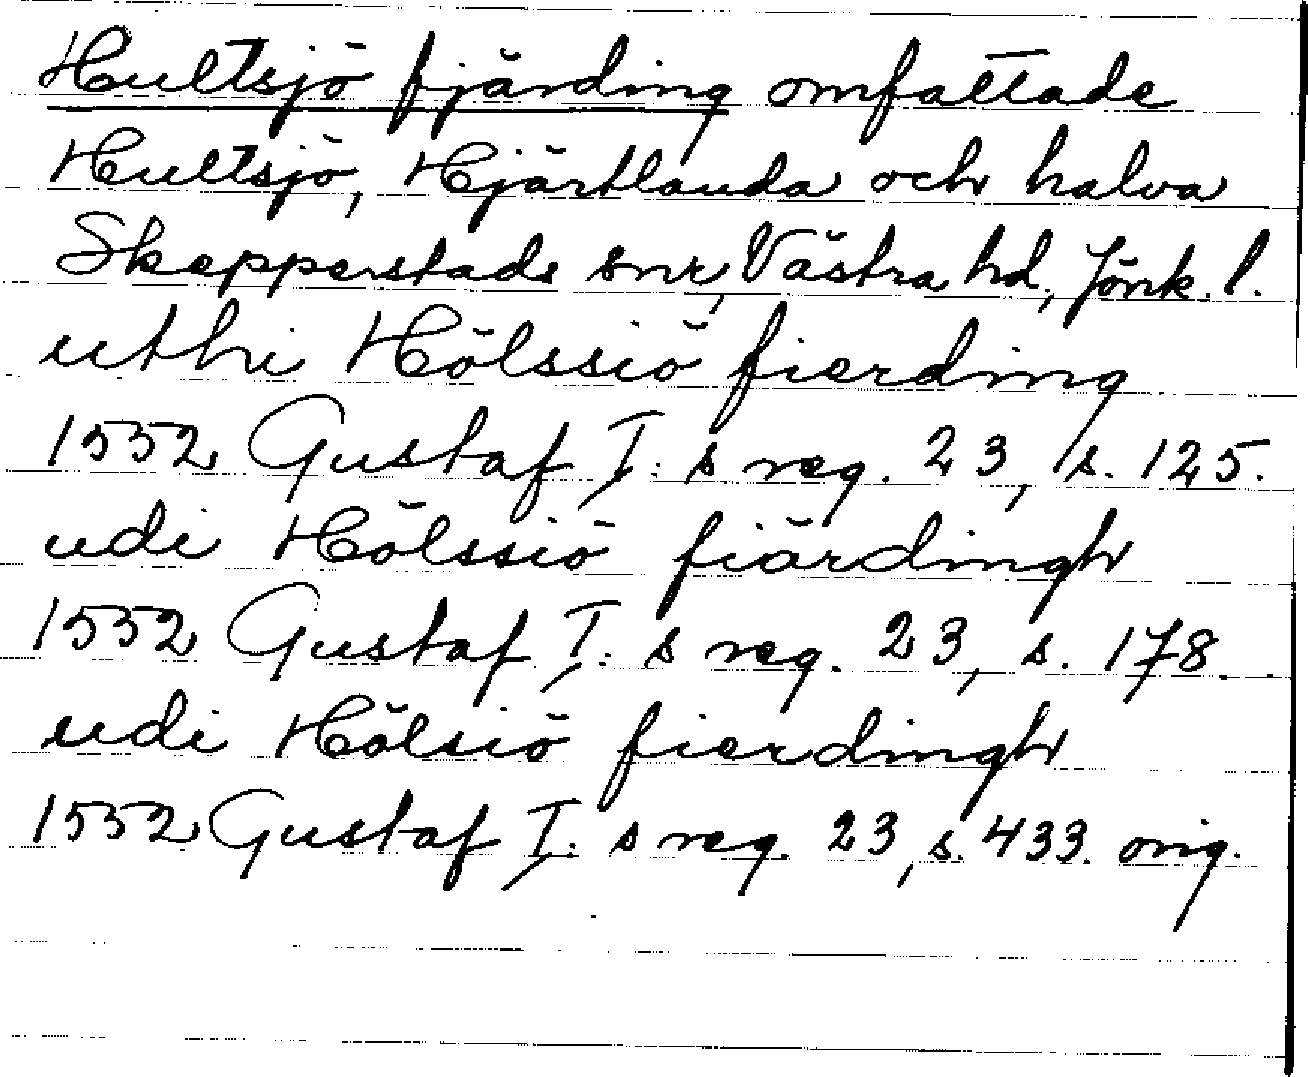 Hultsjö fjärding omfattade
Hultsjö, Hjärtlanda och halva
Skepperstads snr, Västra hd, Jönk. l.
uthi Hölssiö fierding
1552 Gustaf I: s reg. 23, s. 125.
udi Hölssiö fiärdingh
1552 Gustaf I: s reg. 23, s. 178.
udi Hölsiö fierdingh
1552 Gustaf I: s reg. 23, s. 433. orig.